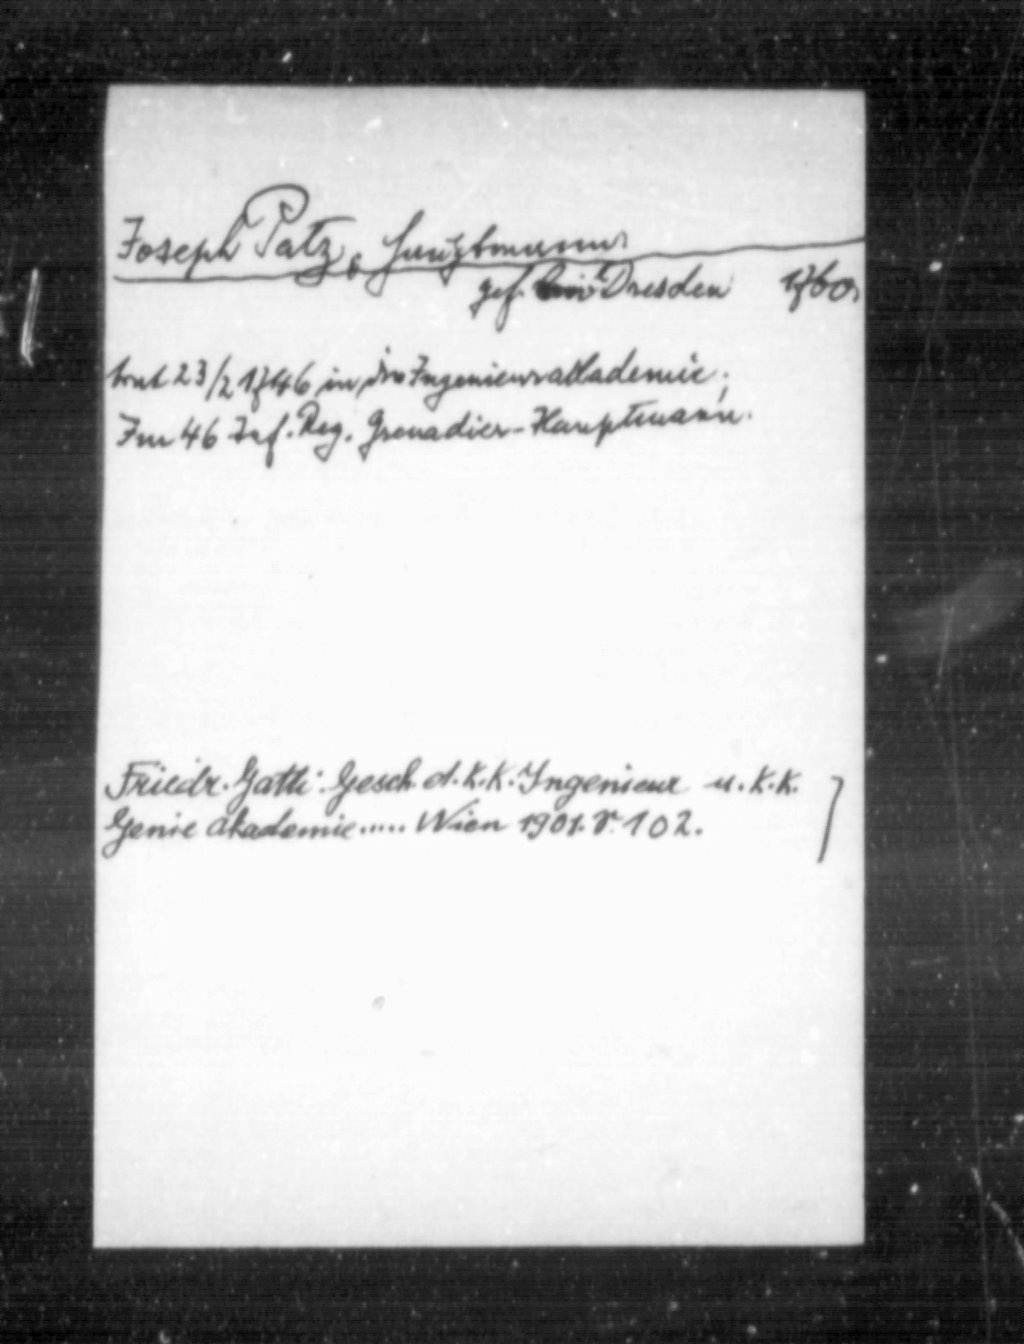 Joseph Patz,
gef. Dresden 1760,
trat 23/2 1746 in die Ingenieurakademie;
Im 46 Inf. Reg. Grenadier-Hauptmann.
Friedr. Gatti: Gesch. d. K. K. Ingenieur u. K. K.
Genie Akademie ..... Wien 1901. S. 102.